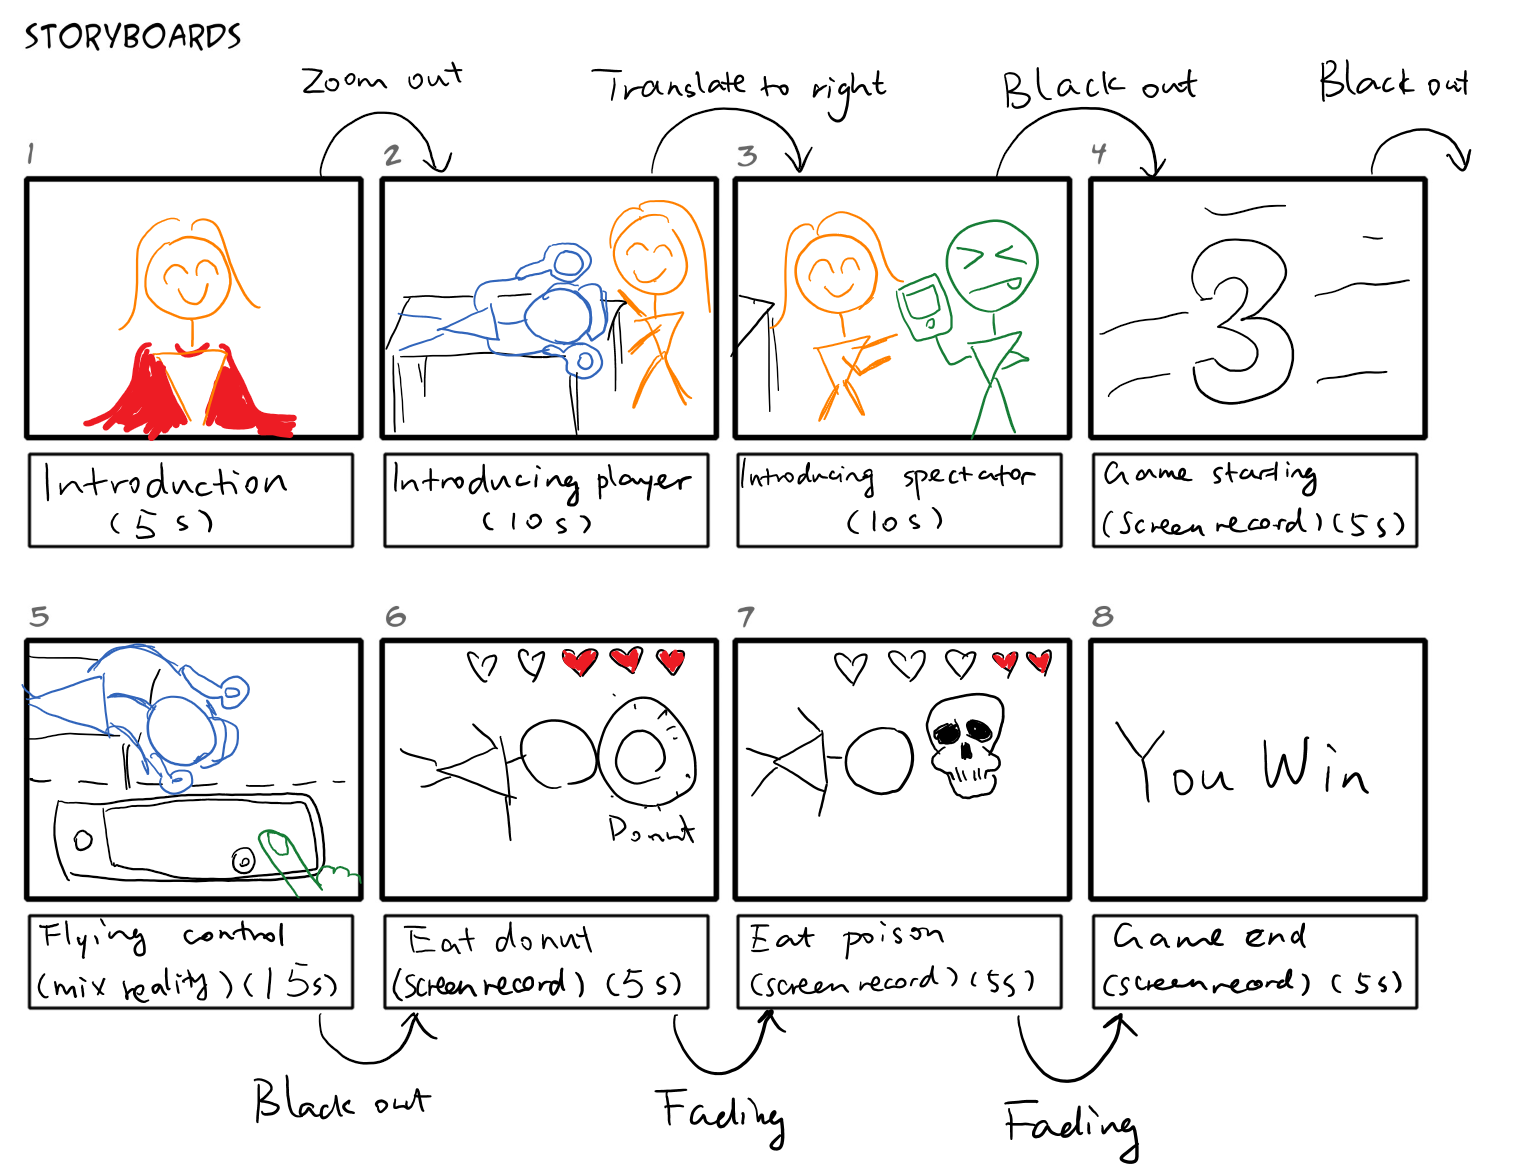 STORYBOARDS
Zoom out
Translate to right
Black out
Black out
1
2
3
4
3
Introduction
(5 s)
Introducing player
(10 s)
Introducing spectator
(10 s)
Game starting
(Screen record) (5 s)
5
6
7
8
Donut
You Win
Flying control
(mix reality) (15s)
Eat donut
(screen record) (5 s)
Eat poison
(screen record) (5s)
Game end
(screen record) (5s)
Black out
Fading
Fading